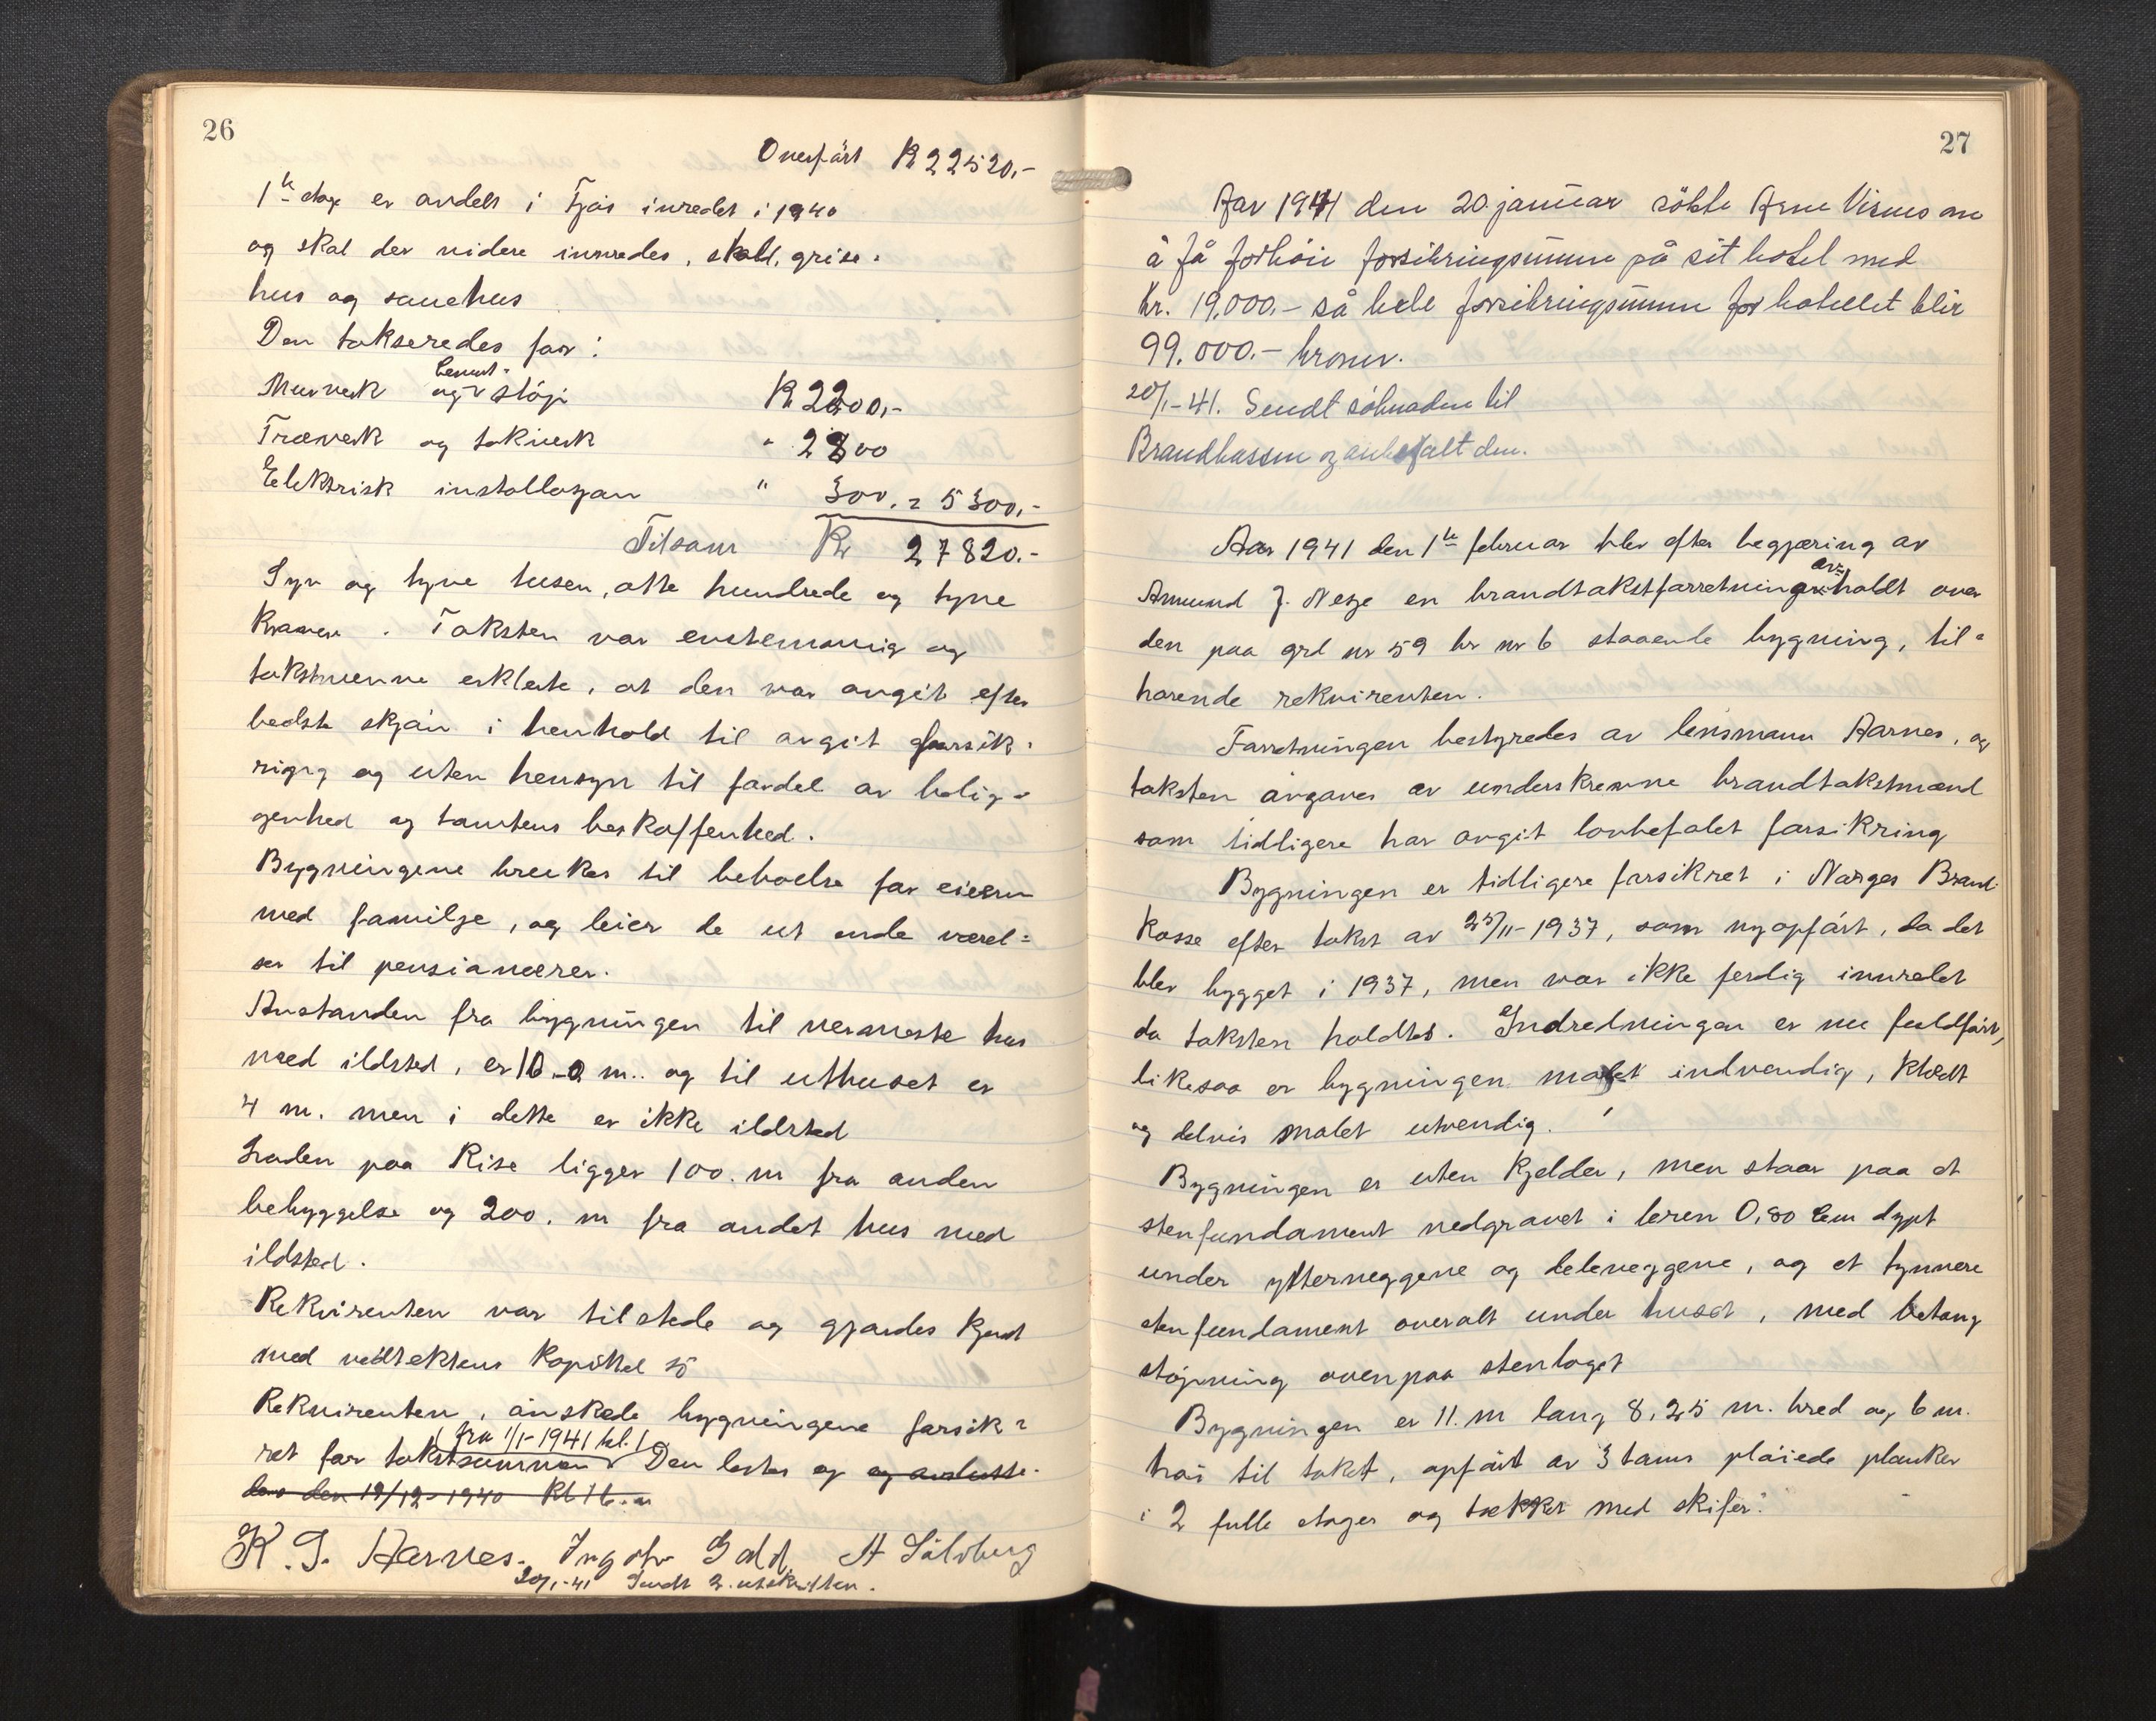 26
Overført Kr 22520,-
1ste etage er avdelt i Fjøs inredet i 1940
og skal der videre innredes, stald, grise-
hus og sauehus
Den takseredes for:
Murverk og cement- støp Kr 2200,-
Træverk og takverk " 2800
Elektrisk installasjon " 300,- = 5300,-
Tilsam Kr 27820.-
Syv og tyve tusen, otte hundrede og tyve
Kroner. Taksten var enstemmig og
takstmenne erklerte, at den var avgit efter
bedste skjøn i henhold til avgit forsik-
ring og uten hensyn til fordel av belig-
genhed og tomtens beskaffenhed.
Bygningene brukes til beboelse for eieren
med familje, og leier de ut ende værel-
ser til pensionærer.
Avstanden fra bygningen til nermeste hus
med ildsted, er 10.0 m. og til uthuset er
4 m. men i dette er ikke ildsted
Laden paa Rise ligger 100. m fra anden
bebyggelse og 200. m fra andet hus med
ildsted.
Rekvirenten var tilstede og gjordes kjent
med vedtektens kapittel 5
Rekvirenten, ønskede bygningene forsik-
ret for takstsummen (fra 1/1-1941 kl. ) Den lestes og og avslutte-
des den 19/12-1940 Kl 16
K. G. Aarnes. Ingolv Gald A Sølvberg
20/1-41 Sendt 2. utskrifter.
27
Aar 1941 den 20 januar søkte Arne Visnes om
å få forhøie forsikringsumme på sit hotel med
kr. 19,000.- så hele forsikringsumme for hotellet blir
99.000.- kroner.
20/1-41. Sendt søknaden til
Brandkassen og anbefalt den.
Aar 1941 den 1ste februar blev efter begjæring av
Amund J. Nesje en brandtakstforretning avholdt over
den paa grd nr 59 br nr 6 staaende bygning, til-
hørende rekvirenten.
Forretningen bestyredes av lensmann Aarnes, og
taksten avgaves av underskrevne brandtakstmænd
som tidligere har avgit lovbefalet forsikring
Bygningen er tidligere forsikret i Norges Brand-
kasse efter takst av 25/11-1937, som nyopført, da det
blev bygget i 1937, men var ikke ferdig innredet
da taksten holdtes. Indredningen er nu fuldført,
likesaa er bygningen malet indvendig, klædt
og delvis malet utvendig.
Bygningen er uten kjelder, men staar paa et
stenfundament nedgravet i leren 0,80 cm dypt
under ytterveggene og deleveggene, og et tynnere
stenfundament overalt under huset, med betong
støpning ovenpaa stenlaget
Bygningen er 11. m lang 8,25 m. bred og 6 m.
høi til taket, opført av 3 toms pløiede planker
i 2 fulle etager og tækket med skifer.